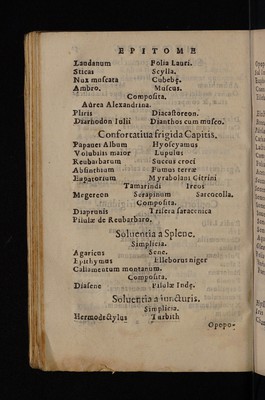 EPITOME
Laudanum Folia Lauri.
Sticas Scylla.
Nux moscata Cubebę.
Ambro. Muscus.
Composita.
Aurea Alexandrina.
Pliris Diacastoreon.
Diarhodon Iulii Dianthos cum musco.
Confortatiua frigida Capitis.
Papauer Album Hyoscyamus
Volubilis maior Lupulus
Reubarbarum Succus croci
Absinthium Fumus terræ
Eupatorium Myrabolani Citrini
Tamarindi Ireos
Megereon Serapinum Sarcocolla.
Composita.
Diaprunis Trifera saracenica
Pilulæ de Reubarbaro.
Soluentia a Splene.
Simplicia.
Agaricus Sene.
Epithymus Elleborus niger
Callamentum montanum.
Composita.
Diasene Pilulæ Indę.
Soluentia a iuncturis.
Simplicia.
Hermodectylus Turbith
Opopo-